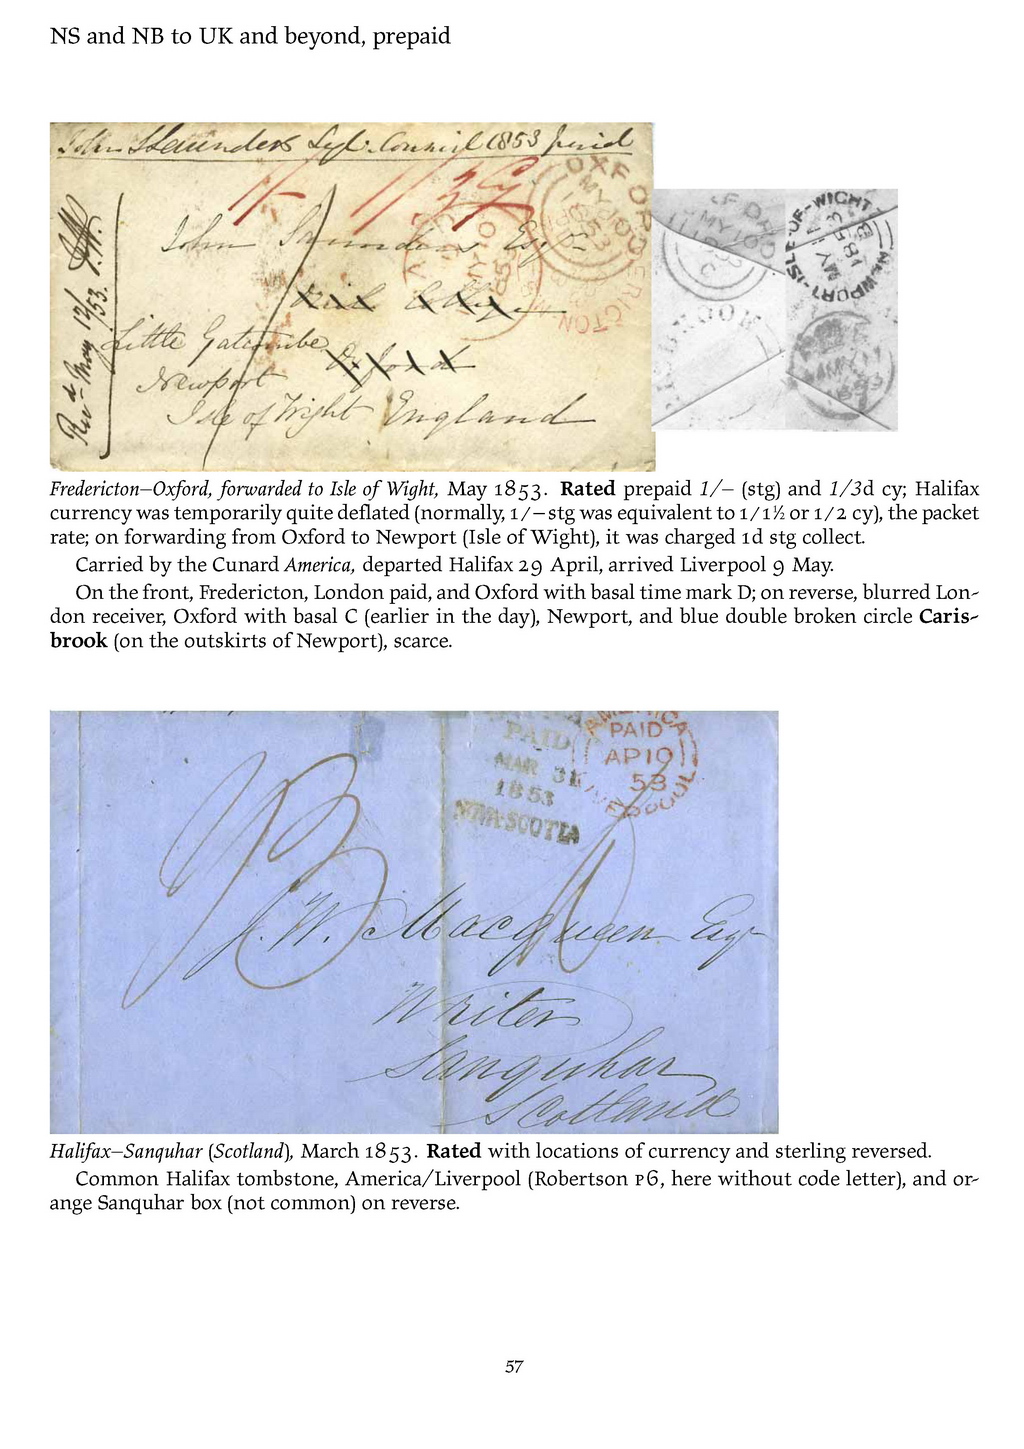 NS and NB to UK and beyond, prepaid
John Saunders Legl. Council 1853 paid
1/- 1/3 Cy
OXFORD
MY 10
1853
FREDERICTON
John Saunders Esqre
Oxford
Little Gatcombe
Newport
Isle of Wight England
Recd May 12/53.
ISLE-OF-WIGHT
NEWPORT
MY
1853
Fredericton–Oxford, forwarded to Isle of Wight, May 1853. Rated prepaid 1/– (stg) and 1/3d cy; Halifax
currency was temporarily quite deflated (normally, 1/–stg was equivalent to 1/1½ or 1/2 cy), the packet
rate; on forwarding from Oxford to Newport (Isle of Wight), it was charged 1d stg collect.
Carried by the Cunard America, departed Halifax 29 April, arrived Liverpool 9 May.
On the front, Fredericton, London paid, and Oxford with basal time mark D; on reverse, blurred Lon-
don receiver, Oxford with basal C (earlier in the day), Newport, and blue double broken circle Caris-
brook (on the outskirts of Newport), scarce.
PAID
MAR 31
1853
NOVA-SCOTIA
AMERICA
PAID
AP 10
53
LIVERPOOL
J. W. Macqueen Esqr
Writer
Sanquhar
Scotland
Halifax–Sanquhar (Scotland), March 1853. Rated with locations of currency and sterling reversed.
Common Halifax tombstone, America/Liverpool (Robertson P6, here without code letter), and or-
ange Sanquhar box (not common) on reverse.
57